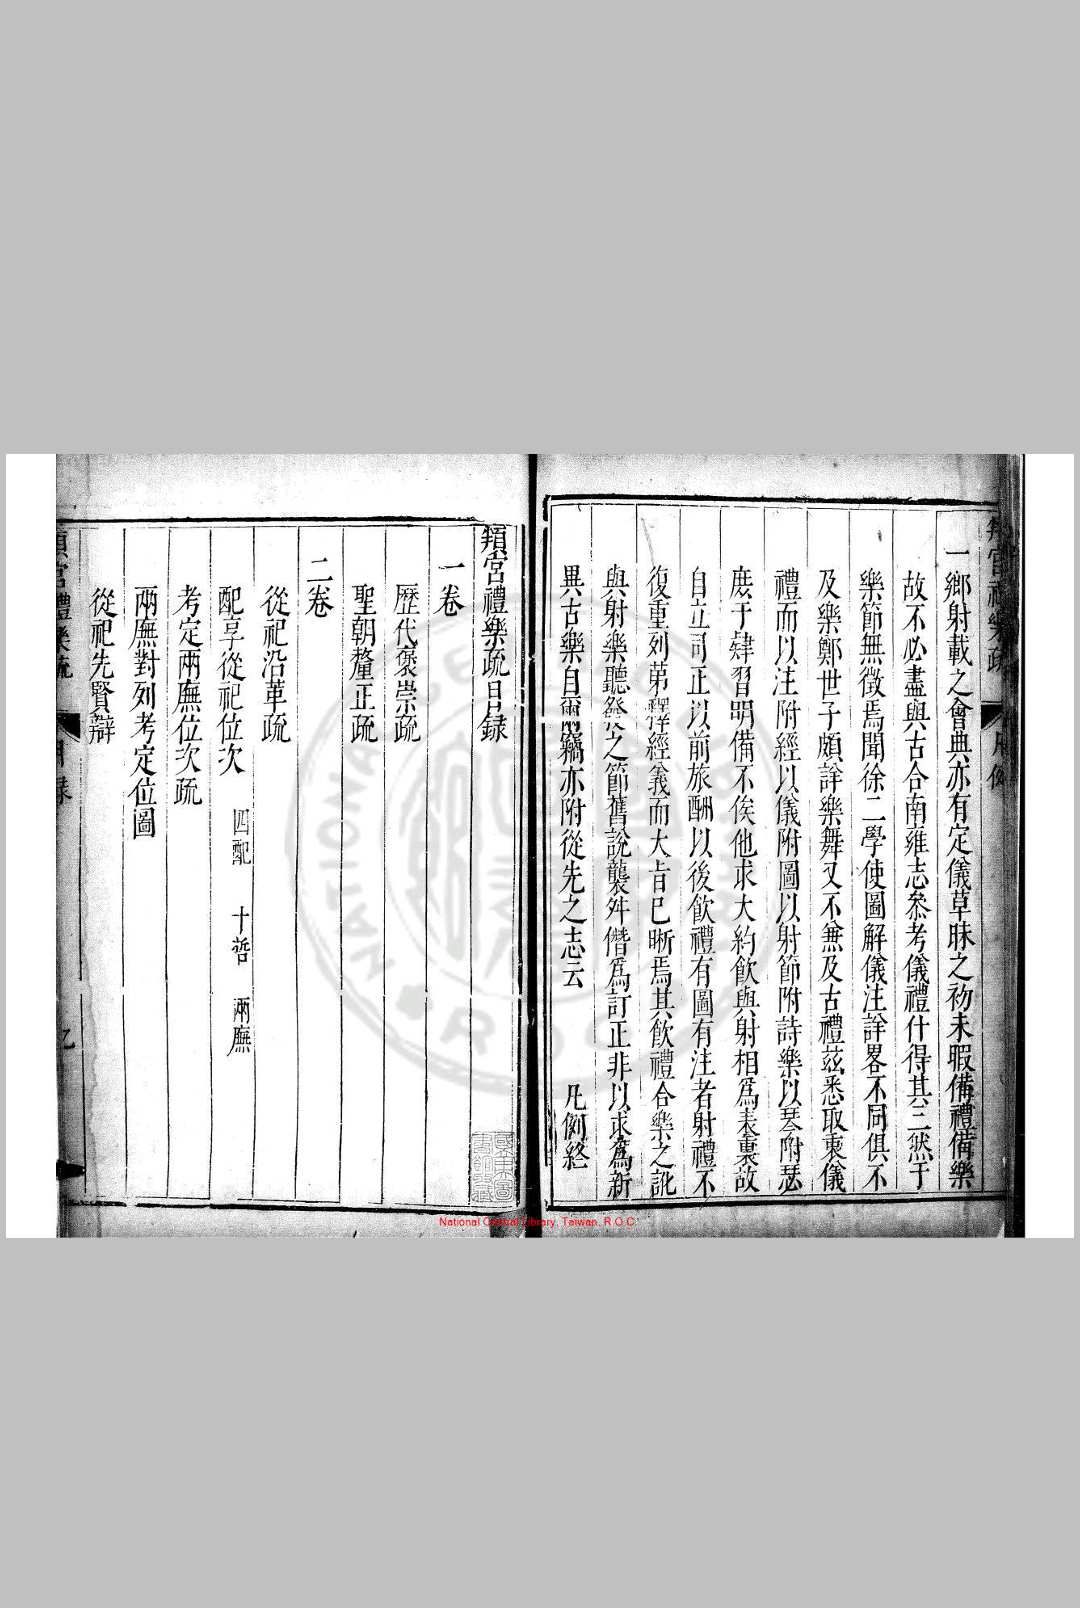 一鄉射載之會典亦有定儀草昧之初未暇備禮備樂
故不必盡與古合南雍志參考儀禮什得其三然于
樂節無徵焉聞徐二學使圖解儀注詳畧不同俱不
及樂鄭世子頗詳樂舞又不兼及古禮茲悉取衷儀
禮而以注附經以儀附圖以射節附詩樂以琴附瑟
庶于肄習明備不俟他求大約飲與射相爲表裏故
自立司正以前旅酬以後飲禮有圖有注者射禮不
復重列第釋經義而大旨已晰焉其飲禮合樂之訛
與射樂聽發之節舊說襲舛僭爲訂正非以求爲新
異古樂自爾闕亦附從先之志云 凡例終
頖宮禮樂疏目錄
一卷
歷代褒崇疏
聖朝釐正疏
二卷
從祀沿革疏
配享從祀位次 四配 十哲 兩廡
考定兩廡位次疏
兩廡對列考定位圖
從祀先賢辯
頖宮禮樂疏 目錄
National Central Library, Taiwan, R.O.C